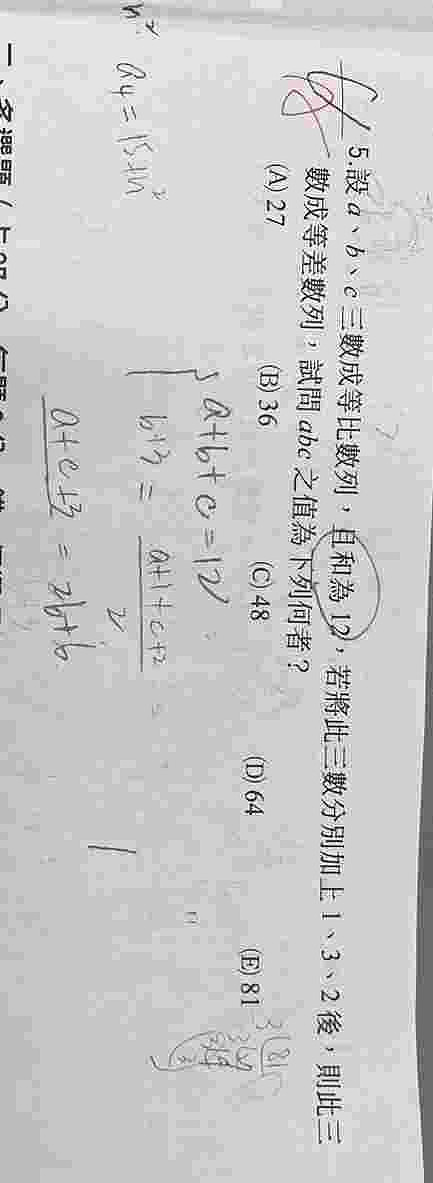 5.設 a、b、c 三數成等比數列，且和為 12，若將此三數分別加上 1、3、2 後，則此三
數成等差數列，試問 abc 之值為下列何者？
(A) 27 (B) 36 (C) 48 (D) 64 (E) 81
a+b+c=12
b+3 = (a+1+c+2)/2 =
a+c+3 = 2b+6
a4 = 15+n²
n²